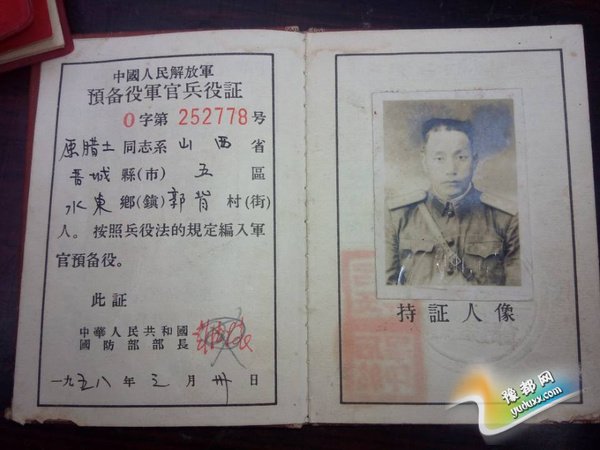 中國人民解放軍
預备役軍官兵役証
0字第 252778 号
原腊土 同志系 山西 省
晋城 縣(市) 五 區
水東 鄉(鎮) 郭背 村(街)
人。按照兵役法的規定編入軍
官預备役。
此証
中華人民共和國
國防部部長
一九五八年三月卅日
持証人像
豫都网
yuduxx.com